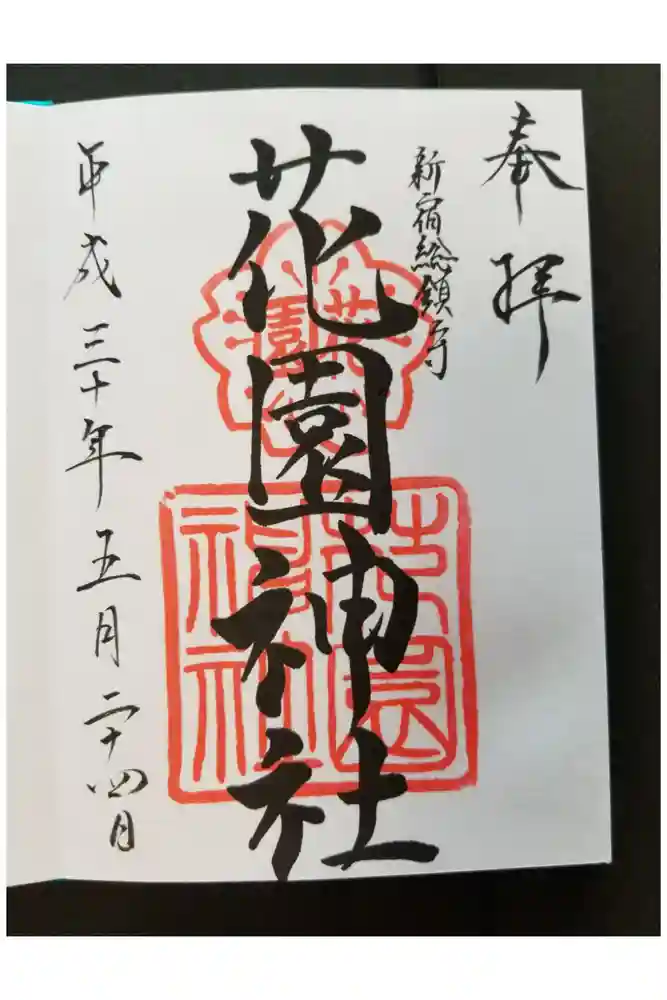 奉拝
新宿総鎮守
花園神社
花園
花園
神社
平成三十年五月二十四日